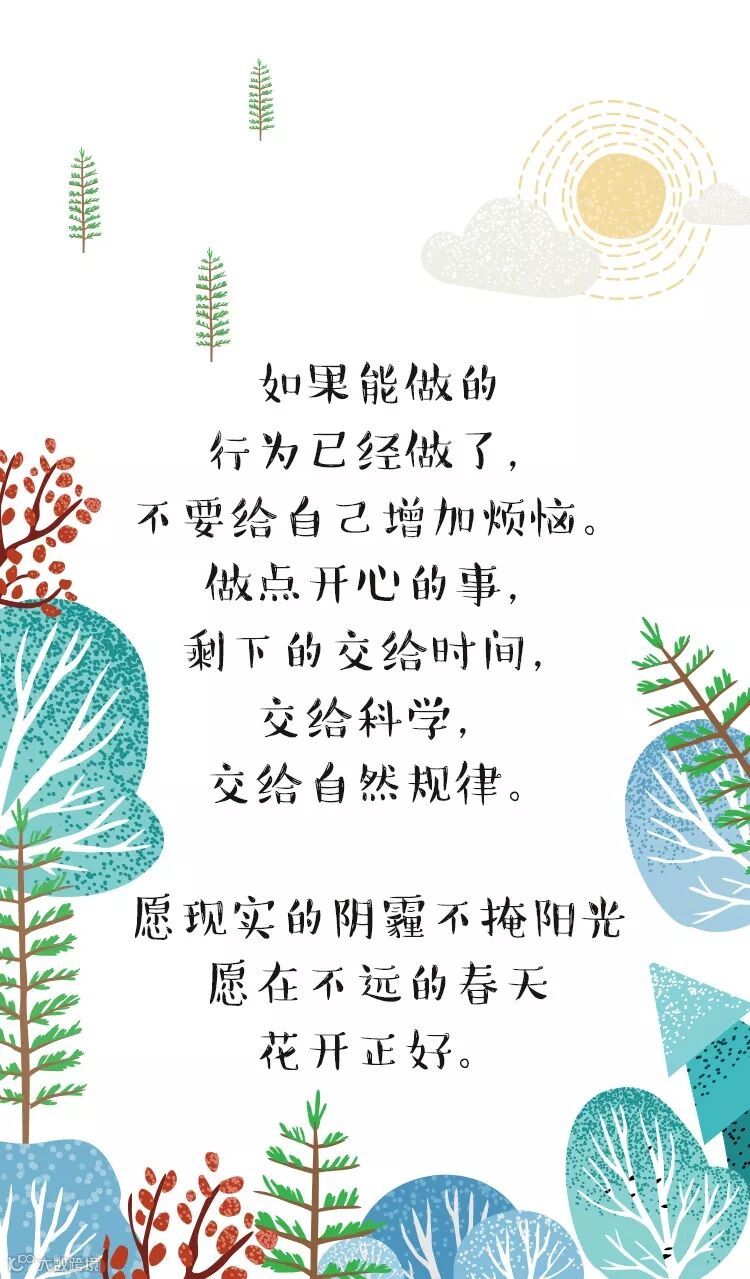 如果能做的
行为已经做了，
不要给自己增加烦恼。
做点开心的事，
剩下的交给时间，
交给科学，
交给自然规律。
愿现实的阴霾不掩阳光
愿在不远的春天
花开正好。
大数跨境